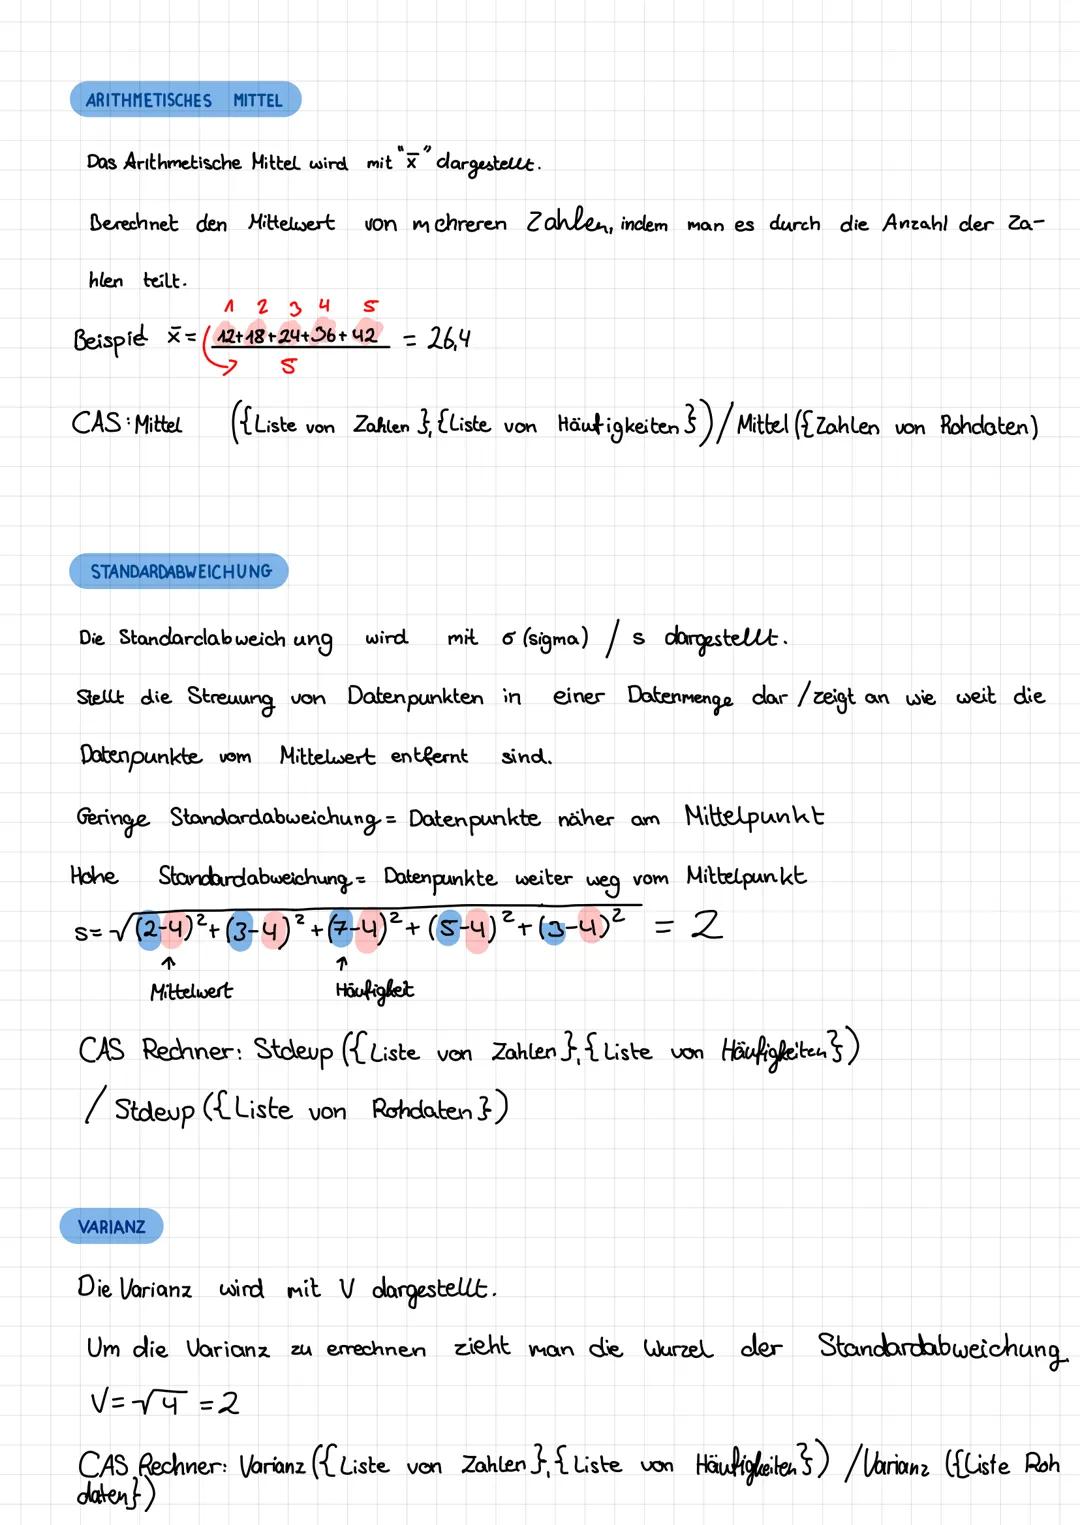 ARITHMETISCHES MITTEL
Das Arithmetische Mittel wird mit "x̄" dargestellt.
Berechnet den Mittelwert von mehreren Zahlen, indem man es durch die Anzahl der Za-
hlen teilt.
1 2 3 4 5
Beispiel x̄ = 12+18+24+36+42 = 26,4
5
CAS: Mittel ({Liste von Zahlen},{Liste von Häufigkeiten}) / Mittel ({Zahlen von Rohdaten)
STANDARDABWEICHUNG
Die Standardabweichung wird mit σ (sigma) / s dargestellt.
Stellt die Streuung von Datenpunkten in einer Datenmenge dar / zeigt an wie weit die
Datenpunkte vom Mittelwert entfernt sind.
Geringe Standardabweichung = Datenpunkte näher am Mittelpunkt
Hohe Standardabweichung = Datenpunkte weiter weg vom Mittelpunkt
s= √(2-4)²+(3-4)²+(7-4)²+(5-4)²+(3-4)² = 2
↑ ↑
Mittelwert Häufigkeit
CAS Rechner: Stdevp ({Liste von Zahlen},{Liste von Häufigkeiten})
/ Stdevp ({Liste von Rohdaten})
VARIANZ
Die Varianz wird mit V dargestellt.
Um die Varianz zu errechnen zieht man die Wurzel der Standardabweichung
V= √4 = 2
CAS Rechner: Varianz ({Liste von Zahlen},{Liste von Häufigkeiten}) / Varianz ({Liste Roh
daten})